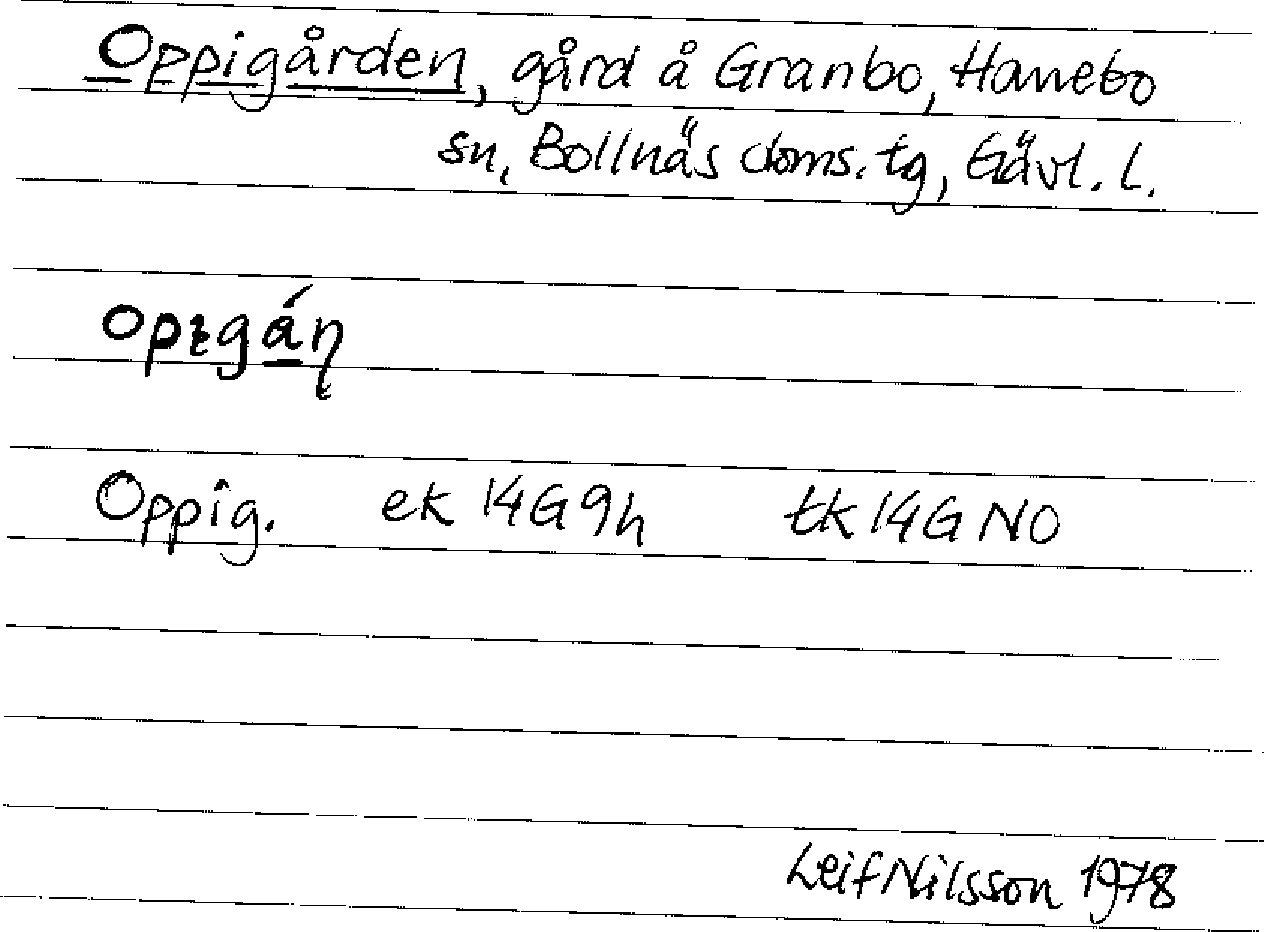 Oppigården, gård å Granbo, Hanebo
sn, Bollnäs doms. tg, Gävl. l.
Oppig. ek 14G9h tk 14G NO
Leif Nilsson 1978